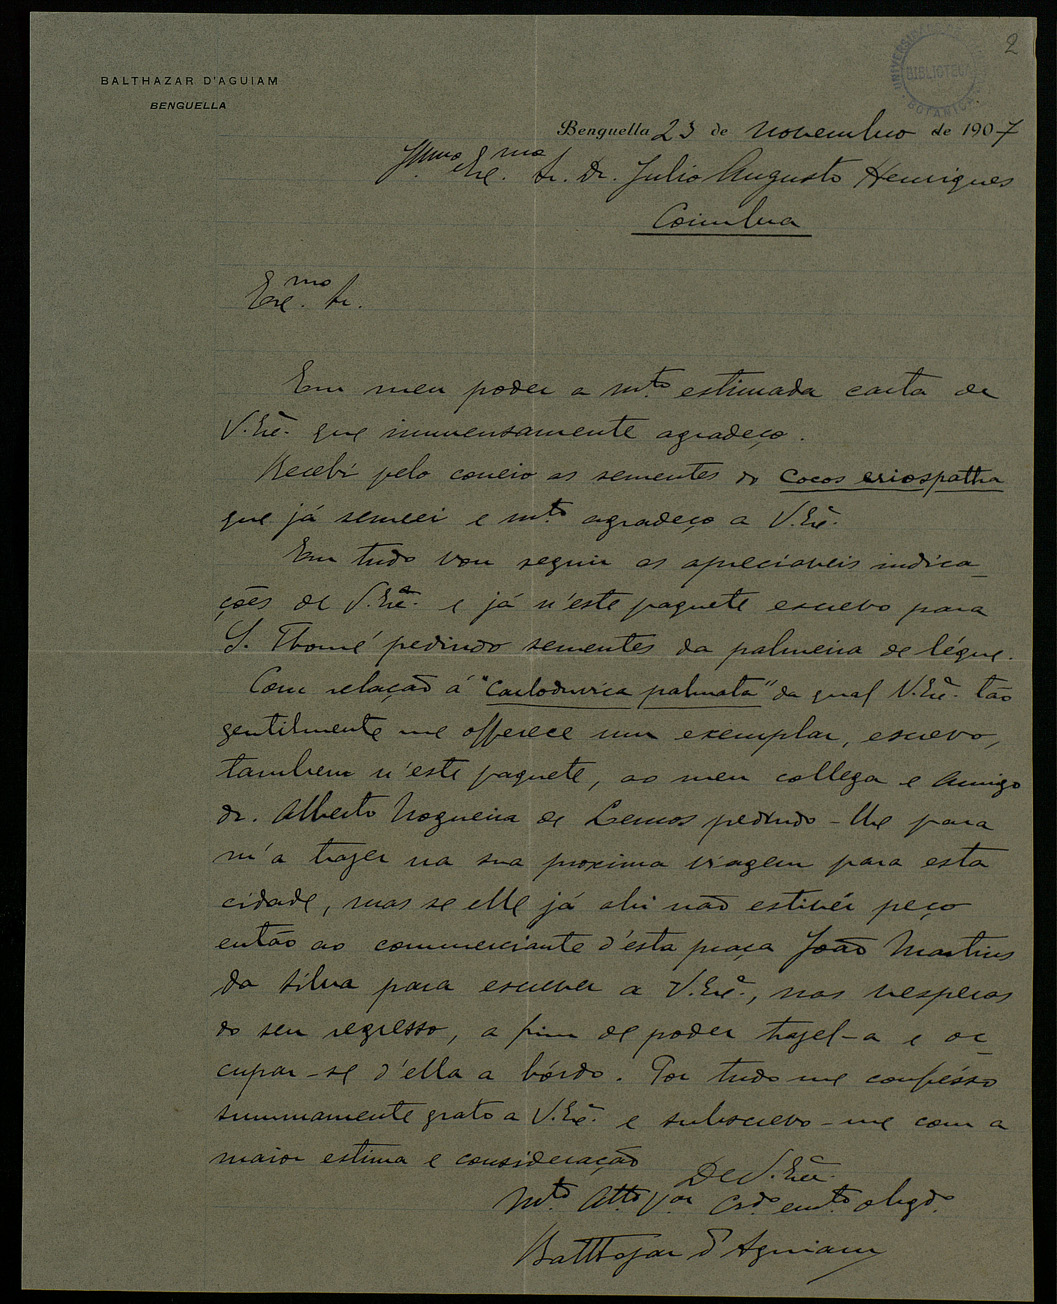 2
UNIVERSIDADE
BIBLIOTECA
BOTANICA
BALTHAZAR D'AGUIAM
BENGUELLA
Benguella 23 de novembro de 1907
Illmo. e Exmo. Sr. Dr. Julio Augusto Henriques
Coimbra
Exmo. Sr.
Em meu poder a mto. estimada carta de
V. Exa. que immensamente agradeço.
Recebi pelo correio as sementes do Cocos eriospatha
que já semeei e mto. agradeço a V. Exa.
Em tudo vou seguir as apreciaveis indica-
ções de V. Exa. e já n'este paquete escrevo para
S. Thomé pedindo sementes da palmeira de léque.
Com relação á "Carlodovica palmata" da qual V. Exa. tão
gentilmente me offerece um exemplar, escrevo,
tambem n'este paquete, ao meu collega e amigo
dr. Alberto Nogueira de Lemos pedindo-lhe para
m'a trazer na sua proxima viagem para esta
cidade, mas se elle já ahi não estivér peço
então ao commerciante d'esta praça João Martins
da Silva para escrever a V. Exa., nas vesperas
do seu regresso, a fim de poder trazel-a e oc-
cupar-se d'ella a bórdo. Por tudo me confésso
summamente grato a V. Exa. e subscrevo-me com a
maior estima e consideração
De V. Exa.
Mto. Atto. Vor. Crdo. e mto. obgdo.
Balthazar d'Aguiam